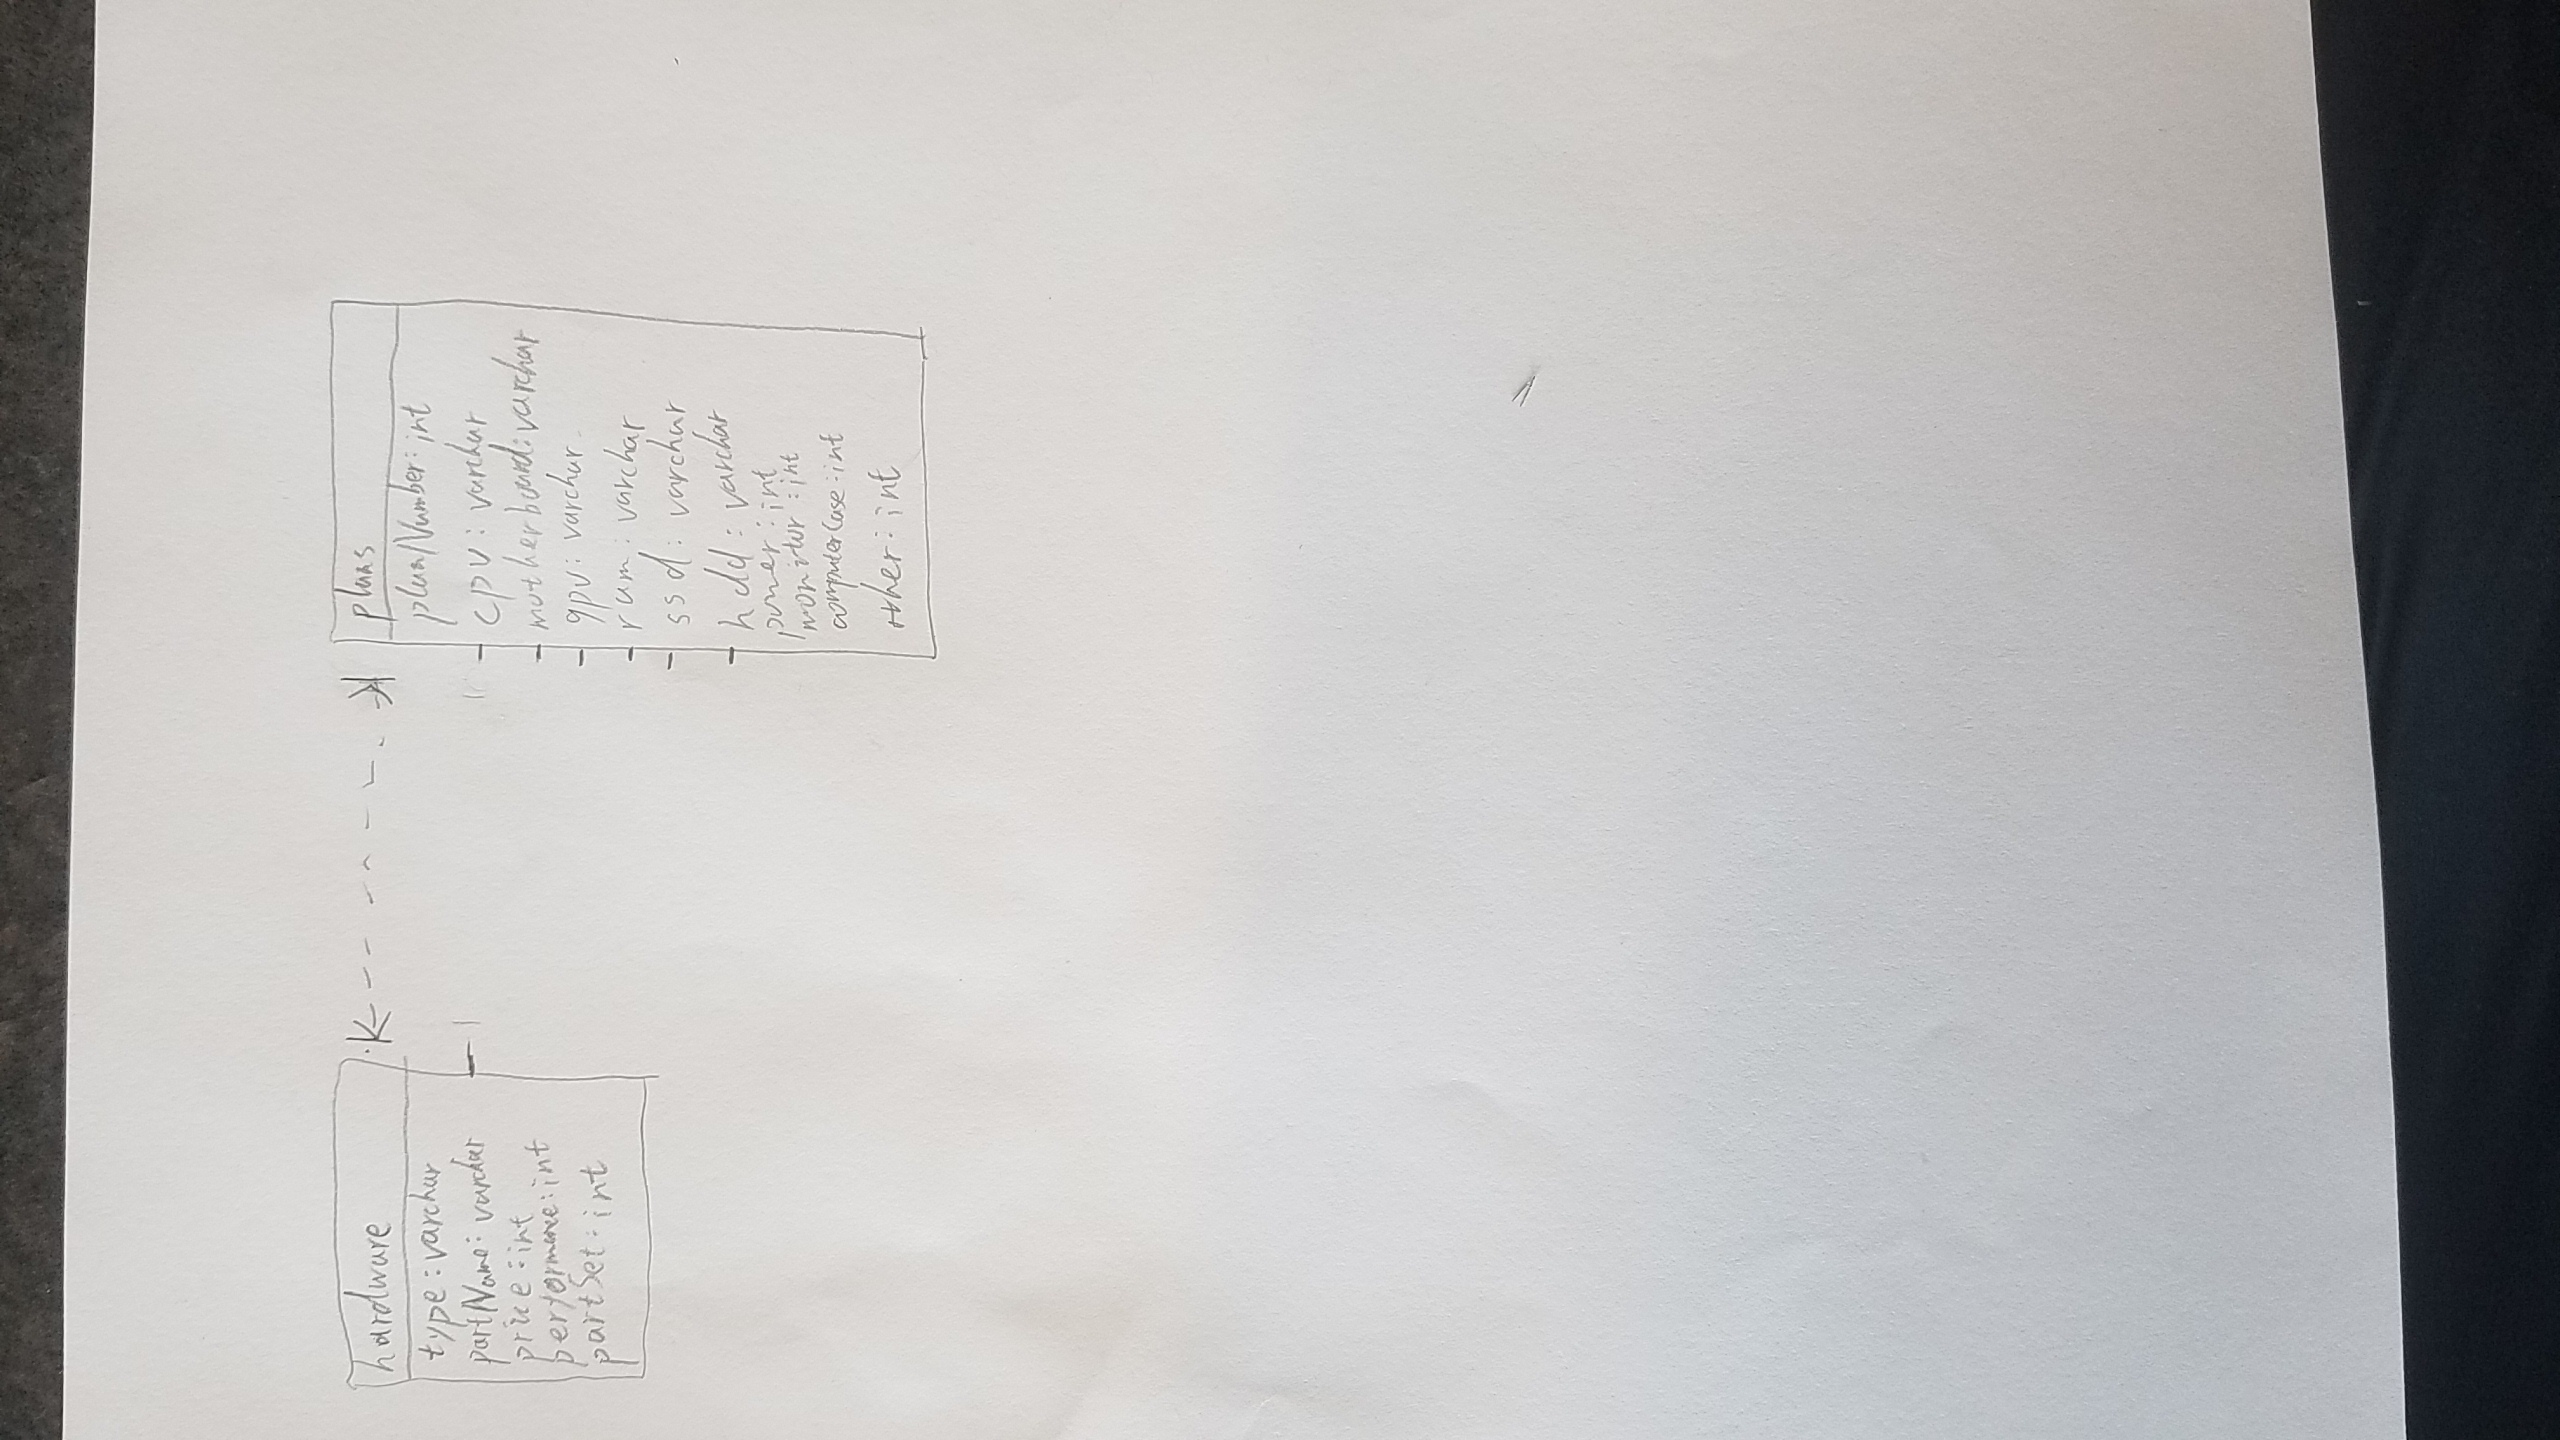 hardware
type: varchar
partName: varchar
price: int
performance: int
partSet: int
plans
planNumber: int
cpu: varchar
motherboard: varchar
gpu: varchar
ram: varchar
ssd: varchar
hdd: varchar
power: int
monitor: int
computerCase: int
other: int